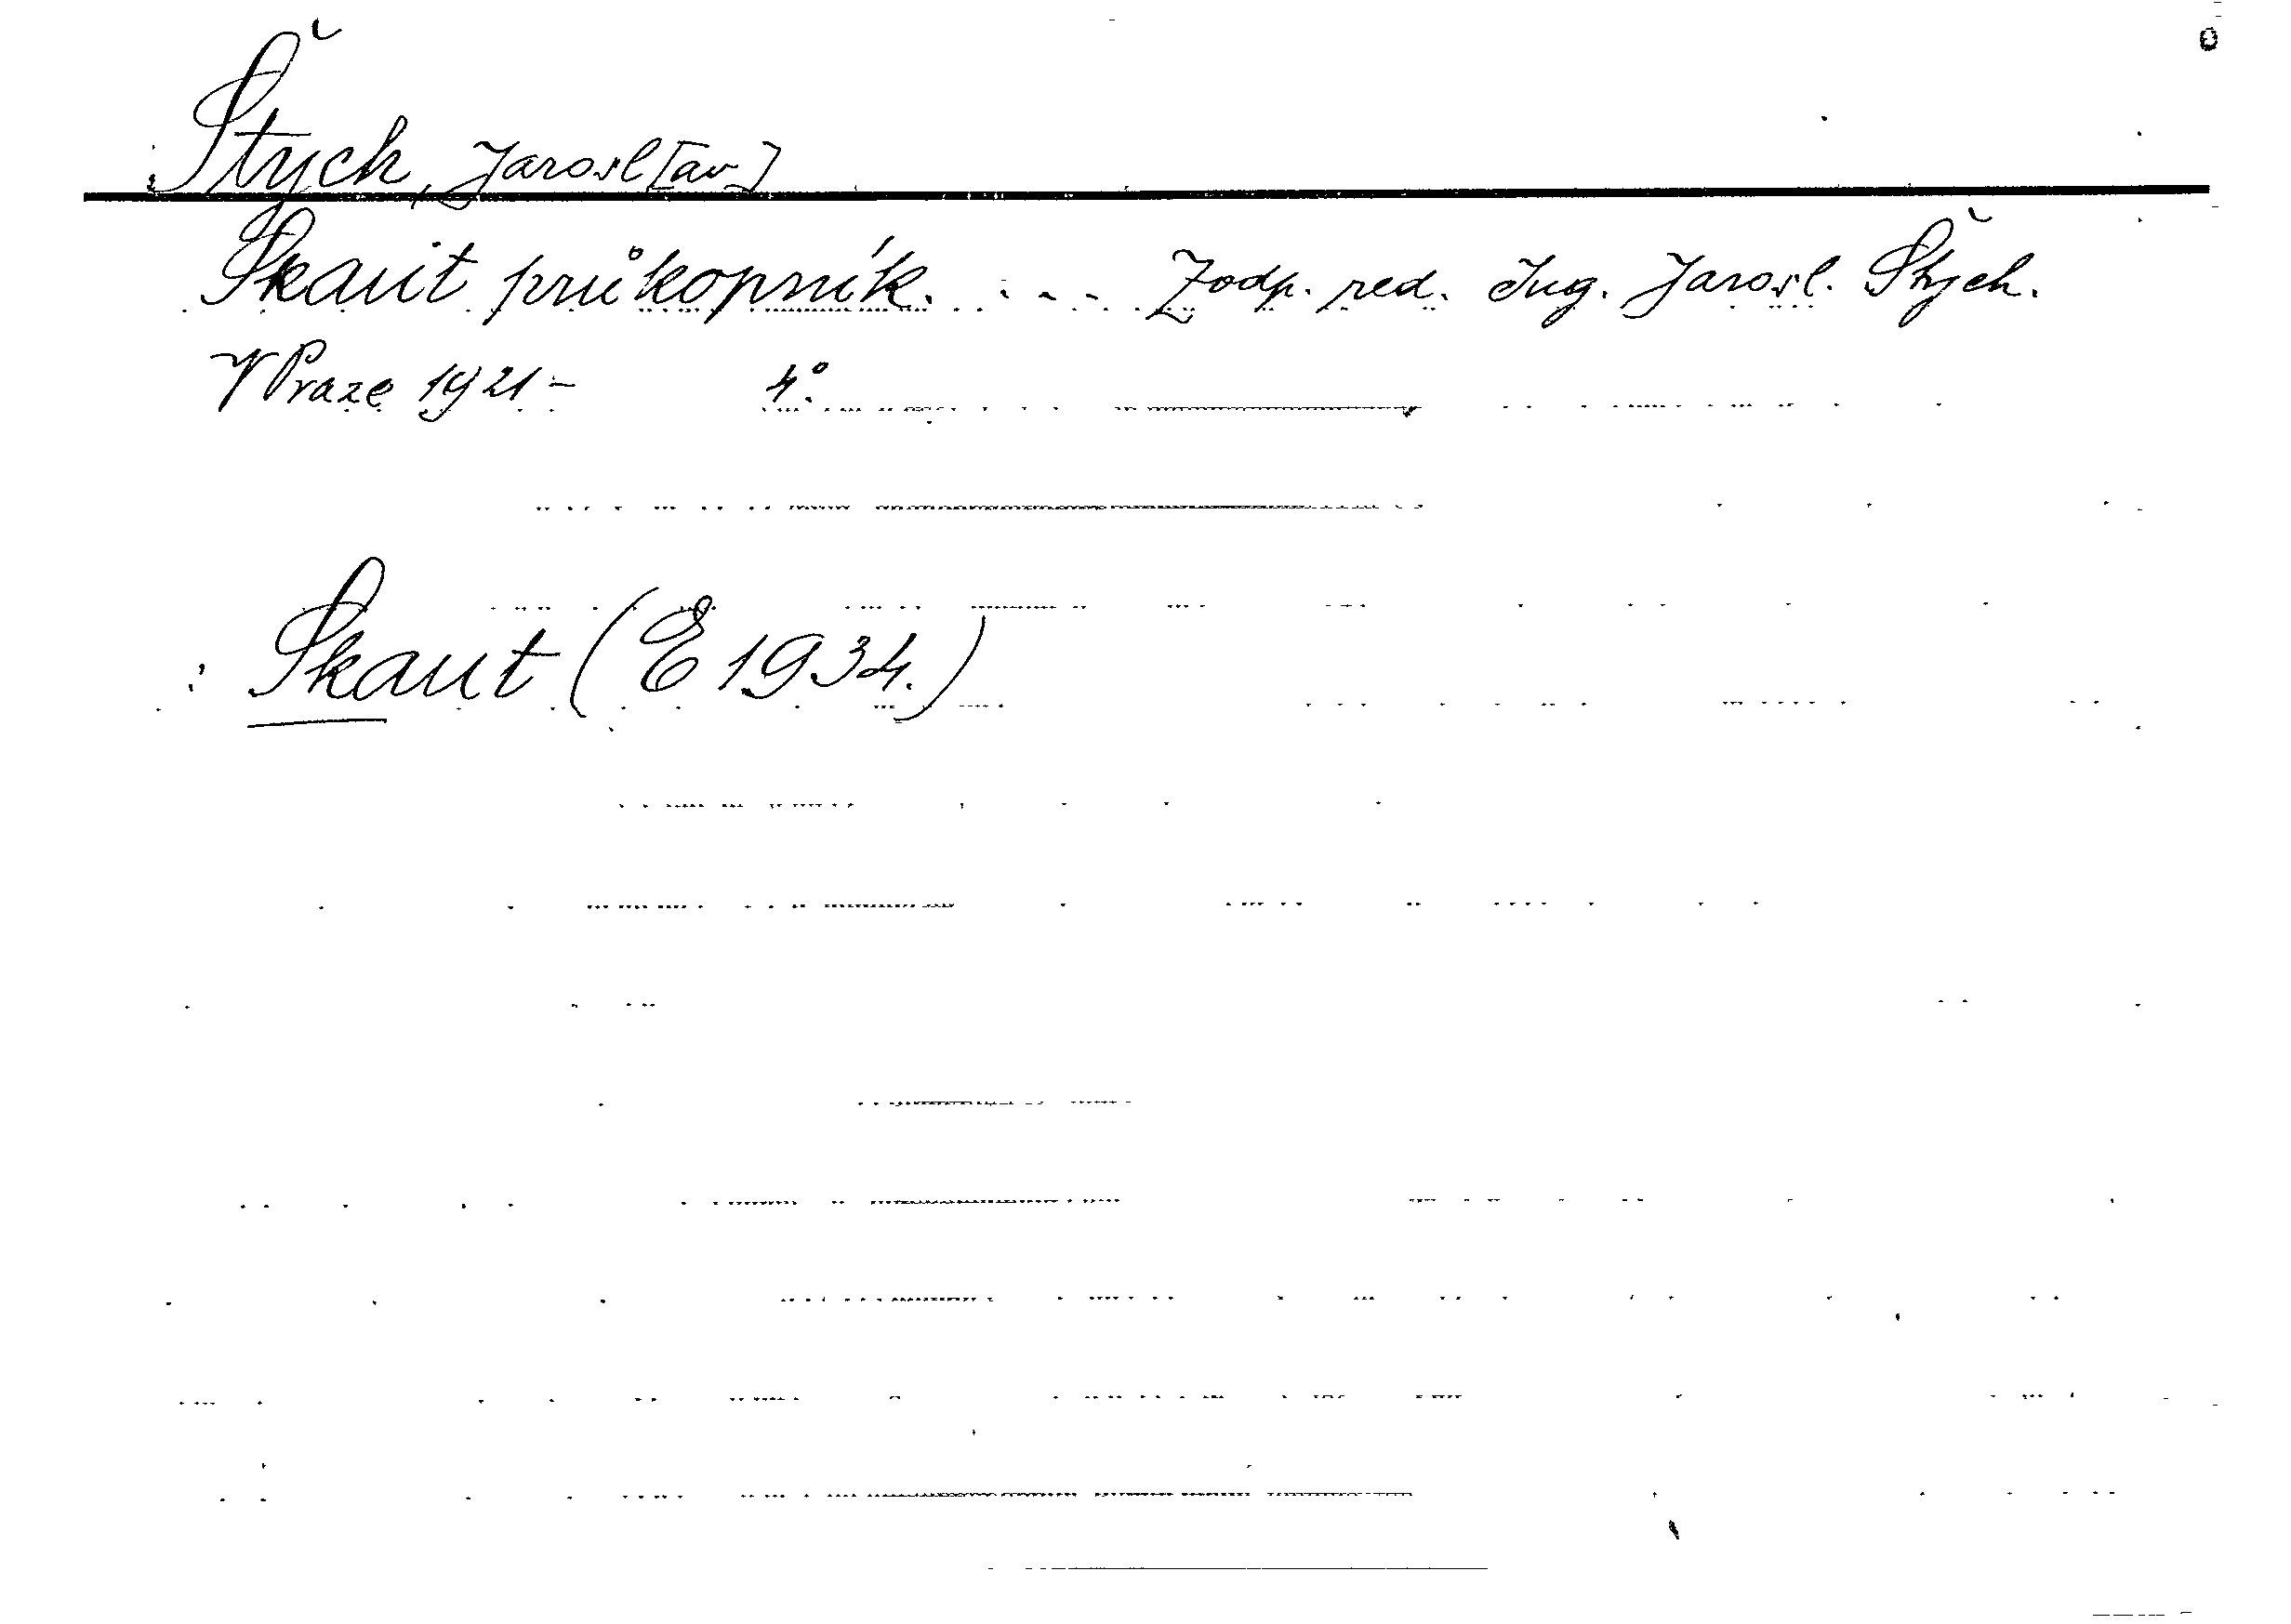 Štych, Jarosl[av]
Skaut průkopník. . . - - Zodp. red. Ing. Jarosl. Štych.
V Praze 1921 - 4°.
Skaut (E 1934.)